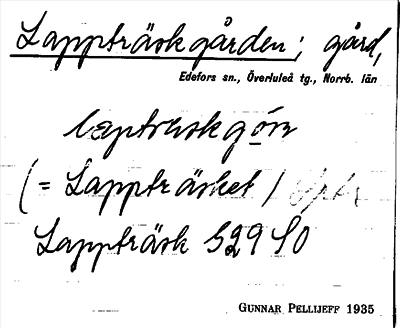 Lappträskgården; gård,
Edefors sn., Överluleå tg., Norrb. län
(= Lappträsket /
Lappträsk S29 SO
GUNNAR PELLIJEFF 1935